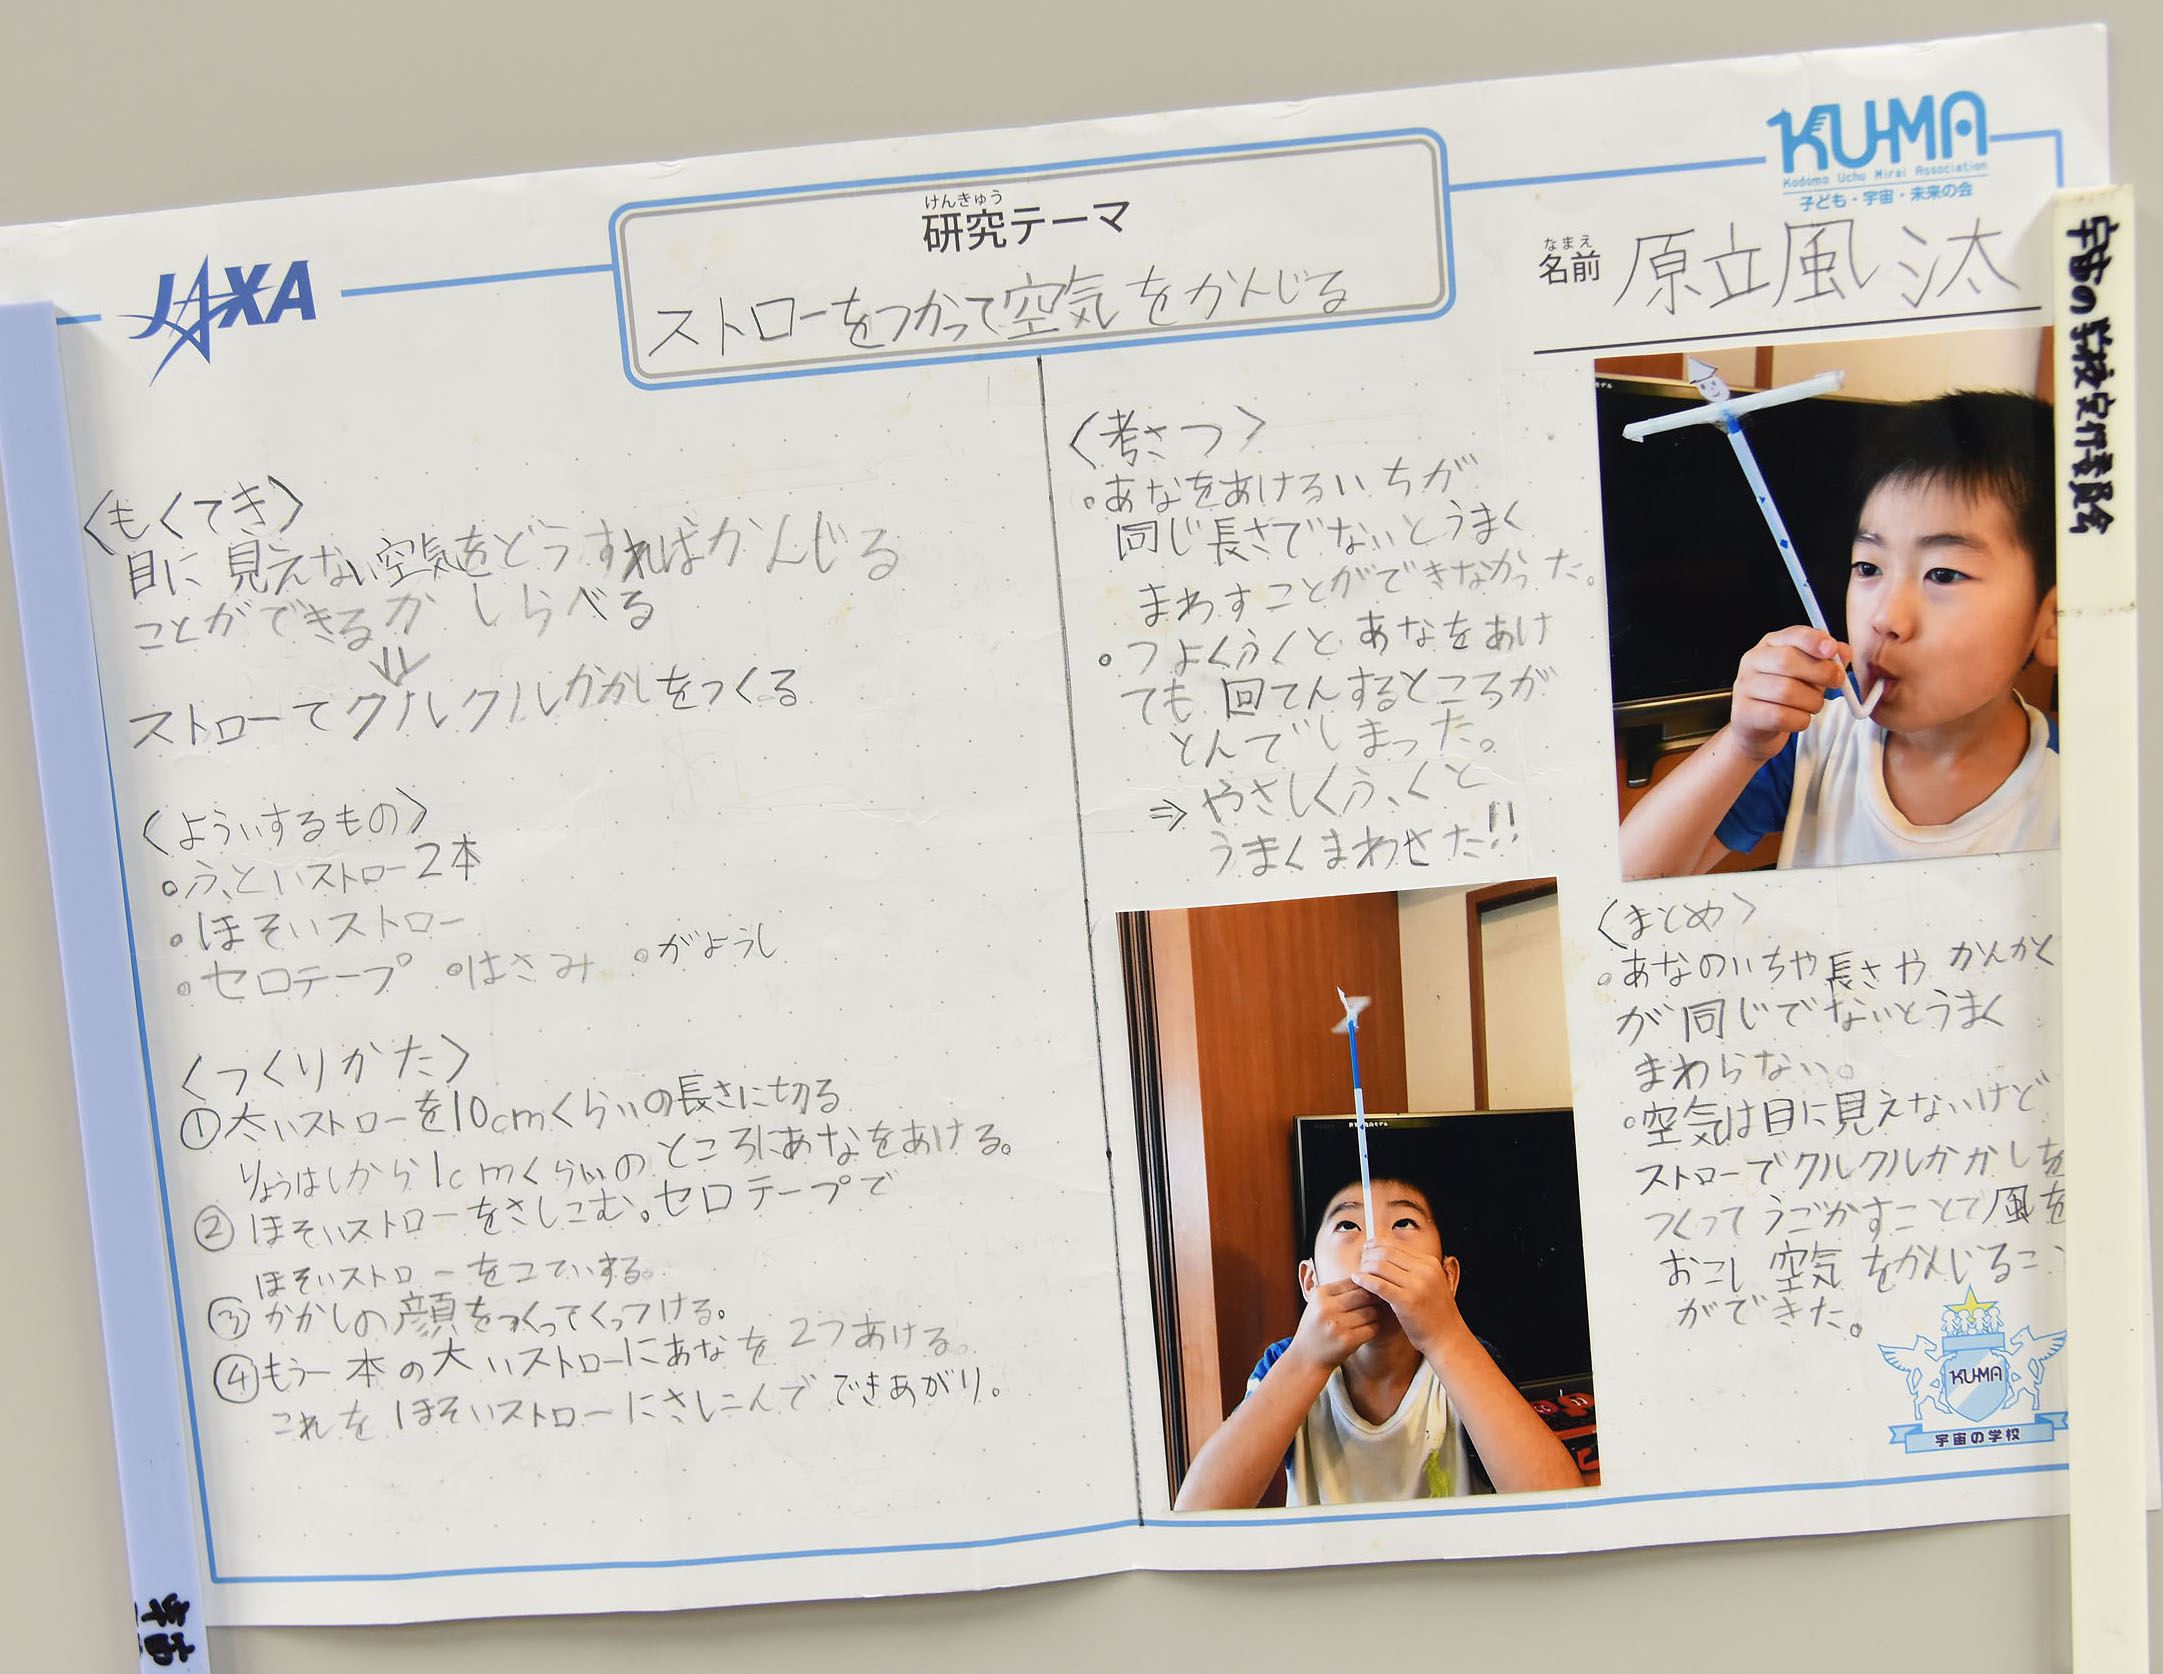 JAXA
けんきゅう
研究テーマ
ストローをつかって空気をかんじる
KU-MA
Kodomo Uchu Mirai Association
子ども・宇宙・未来の会
なまえ
名前 原立風汰
〈もくてき〉
目に見えない空気をどうすればかんじる
ことができるか しらべる
ストローでクルクルかかしをつくる
〈よういするもの〉
・ふといストロー2本
・ほそいストロー
・セロテープ ・はさみ ・がようし
〈つくりかた〉
①太いストローを10cmくらいの長さに切る
りょうはしから1cmくらいのところにあなをあける。
②ほそいストローをさしこむ。セロテープで
ほそいストローをこていする。
③かかしの顔をつくってくっつける。
④もう一本の太いストローにあなを2つあける。
これをほそいストローにさしこんでできあがり。
〈考さつ〉
・あなをあけるいちが
同じ長さでないとうまく
まわすことができなかった。
・つよくふくとあなをあけ
ても回てんするところが
とんでしまった。
⇒やさしくふくと
うまくまわせた!!
〈まとめ〉
・あなのいちや長さやかんかく
が同じでないとうまく
まわらない。
・空気は目に見えないけど
ストローでクルクルかかしを
つくってうごかすことで風を
おこし空気をかんじるこ
ができた。
KU-MA
宇宙の学校
宇宙の学校実行委員会
宇宙